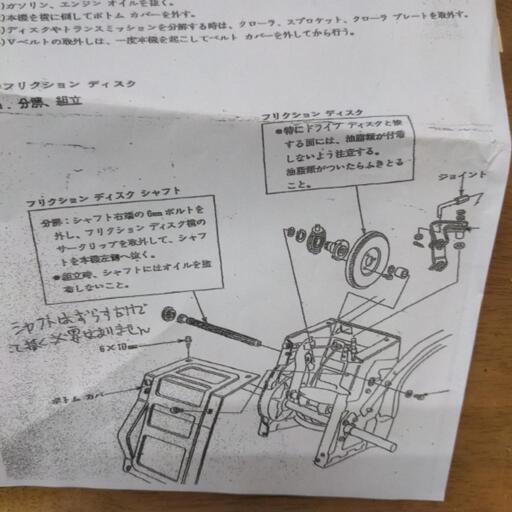 )ガソリン、エンジン オイルを抜く。
)本機を横に倒してボトム カバーを外す。
)ディスクやトランスミッションを分解する時は、クローラ、スプロケット、クローラ プレートを取外す。
)Vベルトの取外しは、一度本機を起こしてベルト カバーを外してから行う。
フリクション ディスク
分解、組立
フリクション ディスク
●特にドライブ ディスクと接
する面には、油脂類が付着
しないよう注意する。
油脂類がついたらふきとる
こと。
ジョイント
フリクション ディスク シャフト
分解：シャフト右端の6mmボルトを
外し、フリクション ディスク横の
サークリップを取外して、シャフ
トを本機左側へ抜く。
●組立時、シャフトにはオイルを塗
布しないこと。
シャフトはずらすだけで
て抜く必要はありません
6×10mm
ボトム カバー